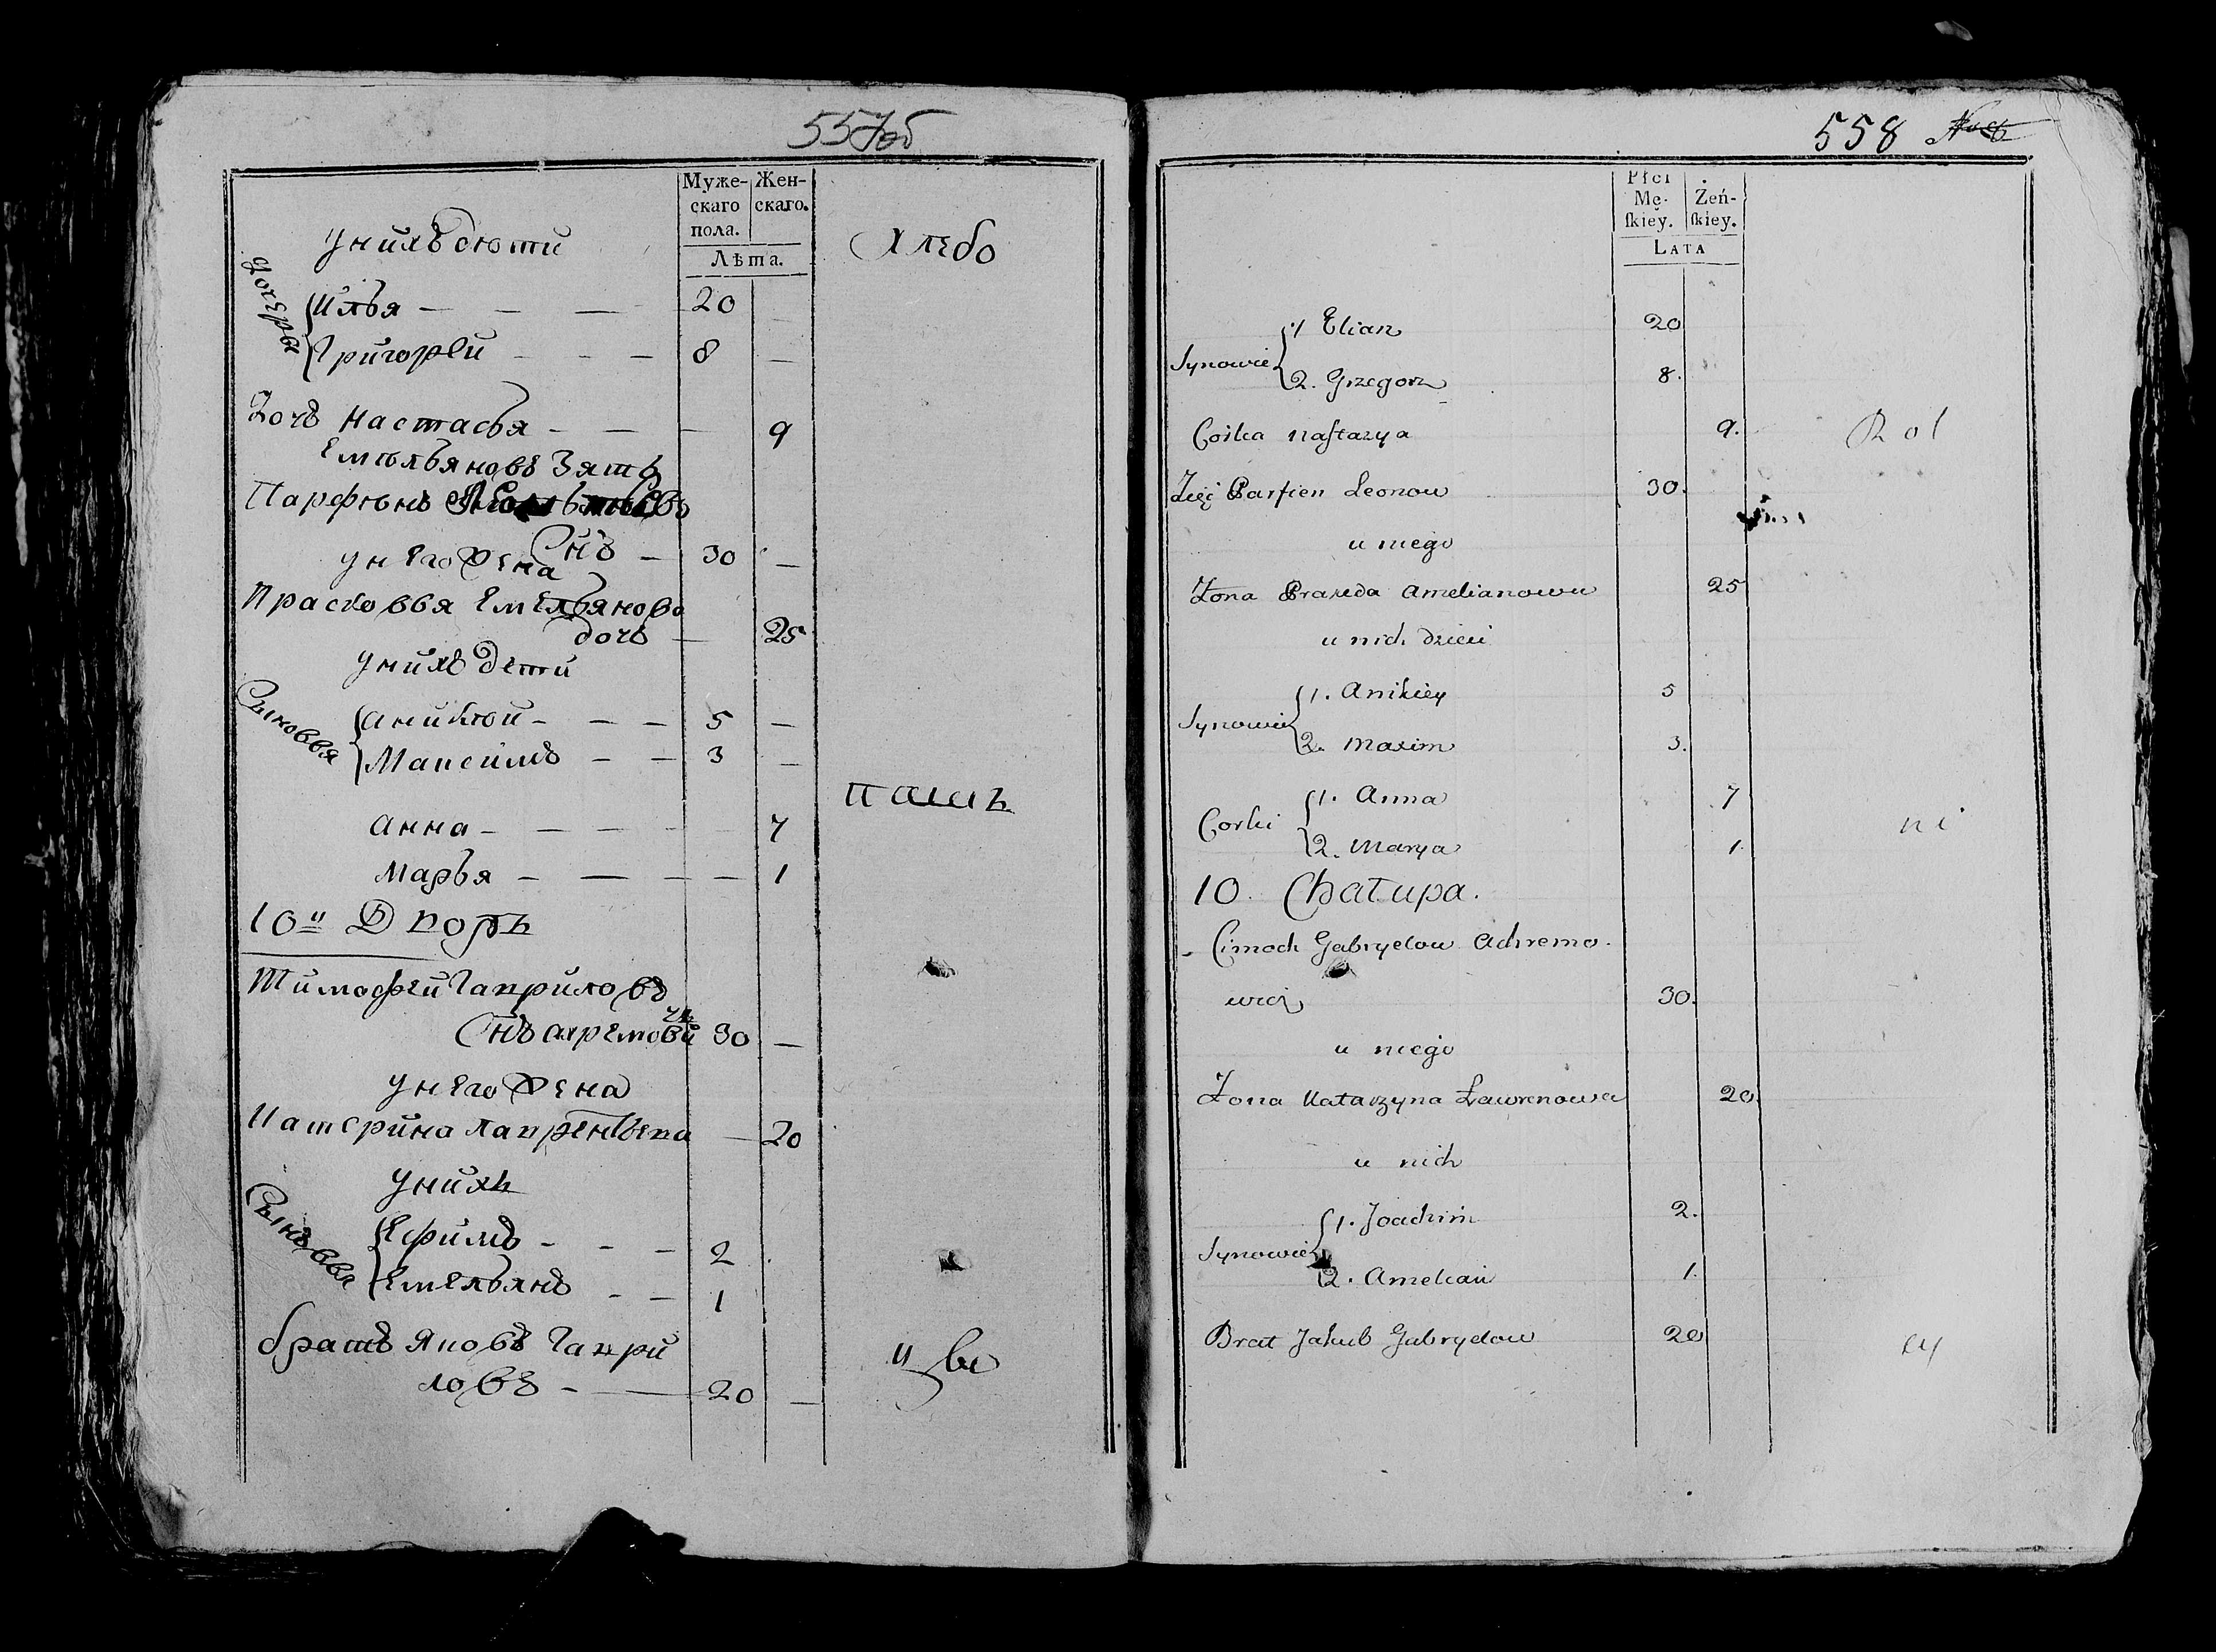 557об
Муже-
скаго
пола.
Жен-
скаго.
Лѣта.
Хлебо
Унихъ дѣти
дочеры
Илья — — — 20
Григорей — — — 8 —
Дочь Настасья — — — 9
Емельяновъ Зять
Парфенъ
Снъ — 30 —
унего жена
Прасковья Емельянова
дочь — 25
Унихъ дети
Сыновья
Аникей — — — 5 —
Максимъ — — 3 —
пашъ
Анна — — — — 7
Марья — — — — 1
10й Дворъ
Тимофей Гавриловъ
Снъ Ахремови 30 —
чь
унего жена
Катерина Лаврентьева — 20
Унихъ
Сыновья
Ефимъ — — — 2
Емельянъ — — 1
братъ Яковъ Гаври
ловъ — — 20 —
цы
558
Płci
Mę-
ſkiey.
Żeń-
ſkiey.
LATA
Synowie
1 Elian 20
2. Grzegorz 8.
Corka Naſtazya 9.
Rol
Zięć Parfien Leonow 30.
u niego
Żona Praxeda Amelianowa 25
u nich dzieci
Synowie
1. Anikiey 5
2. Maxim 3.
Corki
1. Anna 7
2. Marya 1
ni
10. Chałupa.
Cimoch Gabryelow Achremo-
wicz 30.
u niego
Żona Katarzyna Ławrenowa 20.
u nich
Synowie
1. Joachim 2.
2. Amelian 1.
Brat Jakub Gabryelow 20
cy